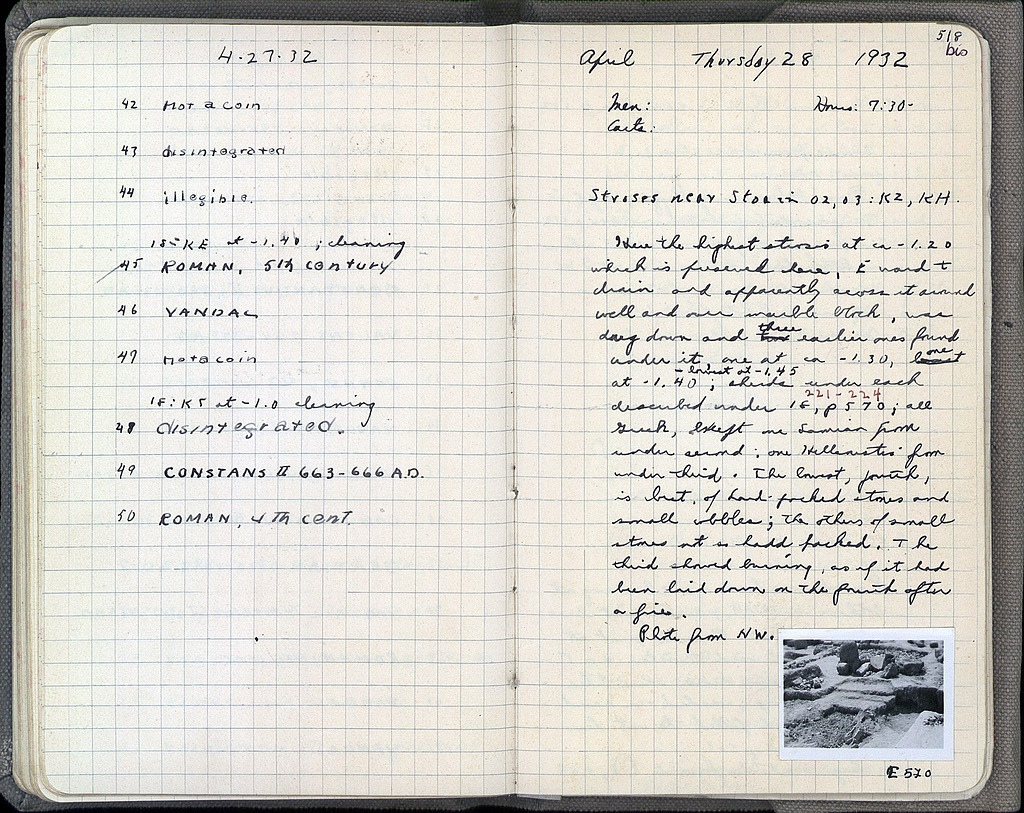 4-27-32
42 Not a coin
43 disintegrated
44 illegible.
18:KE at -1.40; cleaning
45 ROMAN, 5th century
46 VANDAL
47 not a coin
18:K5 at -1.0 cleaning
48 disintegrated.
49 CONSTANS II 663-666 A.D.
50 ROMAN, 4th cent.
518
bis
April Thursday 28 1932
Men: Hours: 7:30-
Carts:
Stroses near Stoa in 02,03:KZ, KH.
Here the highest strosis at ca -1.20
which is preserved here, E ward to
drain and apparently across it around
well and over marble block, was
dug down and three earlier ones found
under it, one at ca -1.30, one
at -1.40; - lowest at -1.45 sherds under each
221-224
described under 18, p 570; all
Greek, except one Samian from
under second; one Hellenistic from
under third. The lowest, fourth,
is best, of hard-packed stones and
small cobbles; the others of small
stones not so hadd packed. The
third showed burning, as if it had
been laid down on the fourth after
a fire.
Photo from NW.
E 570